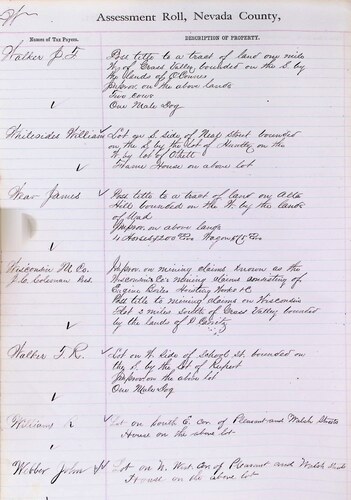 Assessment Roll, Nevada County,
Names of Tax Payers.
DESCRIPTION OF PROPERTY.
Walker J. F.
Poss title to a tract of land one mile
W. of Grass Valley bounded on the S. by
the lands of O'Connor
Improv. on the above land
Two cows
One Male Dog
Whitesides William
Lot on S. side of Neal Street bounded
on the S. by the lot of Huntly on the
W. by lot of
Frame House on above lot
Wear James
Poss title to a tract of land on Alta
Hill bounded on the W. by the lands
of
Improv. on above land
4 Horses Wagon
Wisconsin M. Co.
J. C. Coleman Pres.
Improv. on mining claims known as the
Wisconsin Co's mining claims consisting of
Engine Boiler Hoisting Works &C
Poss title to mining claims on Wisconsin
Flat 2 miles south of Grass Valley bounded
by the lands of
Walker F. R.
Lot on N. Side of School St. bounded on
the S. by the Lot of Rupert
Improv on the above lot
One Male Dog
Williams R
Lot on South E. Cor. of Pleasant and Walsh Streets
House on the above lot
Webber John H
Lot on N. West. Cor of Pleasant and Walsh Streets
House on the above lot